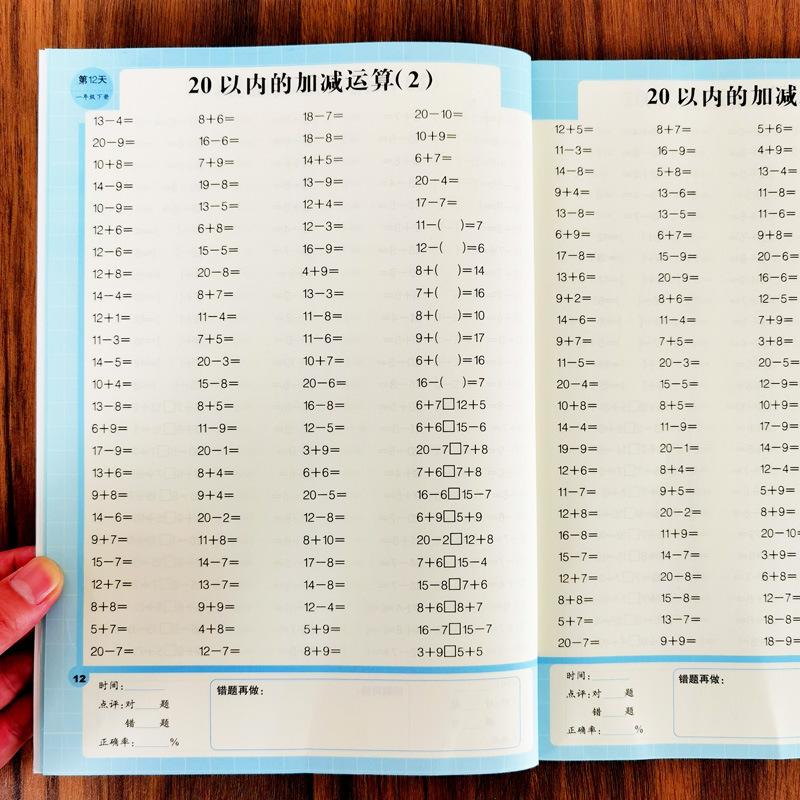 第12天
一年级下册
20以内的加减运算(2)
13-4= 8+6= 18-7= 20-10=
20-9= 16-6= 18-8= 10+9=
10+8= 7+9= 14+5= 6+7=
14-9= 19-8= 13-9= 20-4=
10-9= 13-5= 12+4= 17-7=
12+6= 6+8= 12-3= 11-( )=7
12-6= 15-5= 16-9= 12-( )=6
12+8= 20-8= 4+9= 8+( )=14
14-4= 8+7= 13-3= 7+( )=16
12+1= 11-4= 11-8= 8+( )=10
11-3= 7+5= 11-6= 9+( )=17
14-5= 20-3= 10+7= 6+( )=16
10+4= 15-8= 20-6= 16-( )=7
13-8= 8+5= 16-8= 6+7□12+5
6+9= 11-9= 12-5= 6+6□15-6
17-9= 20-1= 3+9= 20-7□7+8
13+6= 8+4= 6+6= 7+6□7+8
9+8= 9+4= 20-5= 16-6□15-7
14-6= 20-2= 12-8= 6+9□5+9
9+7= 11+8= 8+10= 20-2□12+8
15-7= 14-7= 17-8= 7+6□15-4
12+7= 13-7= 14-8= 15-8□7+6
8+8= 9+9= 12-4= 8+6□8+7
5+7= 4+8= 5+9= 16-7□15-7
20-7= 12-7= 8+9= 3+9□5+5
12
时间：
点评：对 题
错 题
正确率： %
错题再做：
20以内的加减
12+5= 8+7= 5+6=
11-3= 16-9= 4+9=
14-8= 5+8= 13-4=
9+4= 13-6= 11-8=
13-8= 13-5= 11-6=
6+9= 6+7= 9+8=
17-8= 15-9= 20-6=
13+6= 20-9= 16-6=
9+2= 8+6= 12-5=
14-6= 11-4= 7+9=
9+7= 7+5= 3+8=
11-5= 20-3= 20-5=
20-4= 15-5= 12-9=
10+8= 8+5= 10+9=
14-4= 11-9= 17-9=
19-9= 20-1= 14-9=
12+6= 8+4= 12-4=
11-7= 9+5= 5+9=
12+8= 20-2= 8+9=
16-8= 11+9= 20-10=
15-7= 14-7= 3+9=
12+7= 20-8= 6+8=
8+8= 15-8= 12-7=
5+7= 13-7= 18-8=
20-7= 9+9= 18-9=
时间：
点评：对 题
错 题
正确率： %
错题再做：